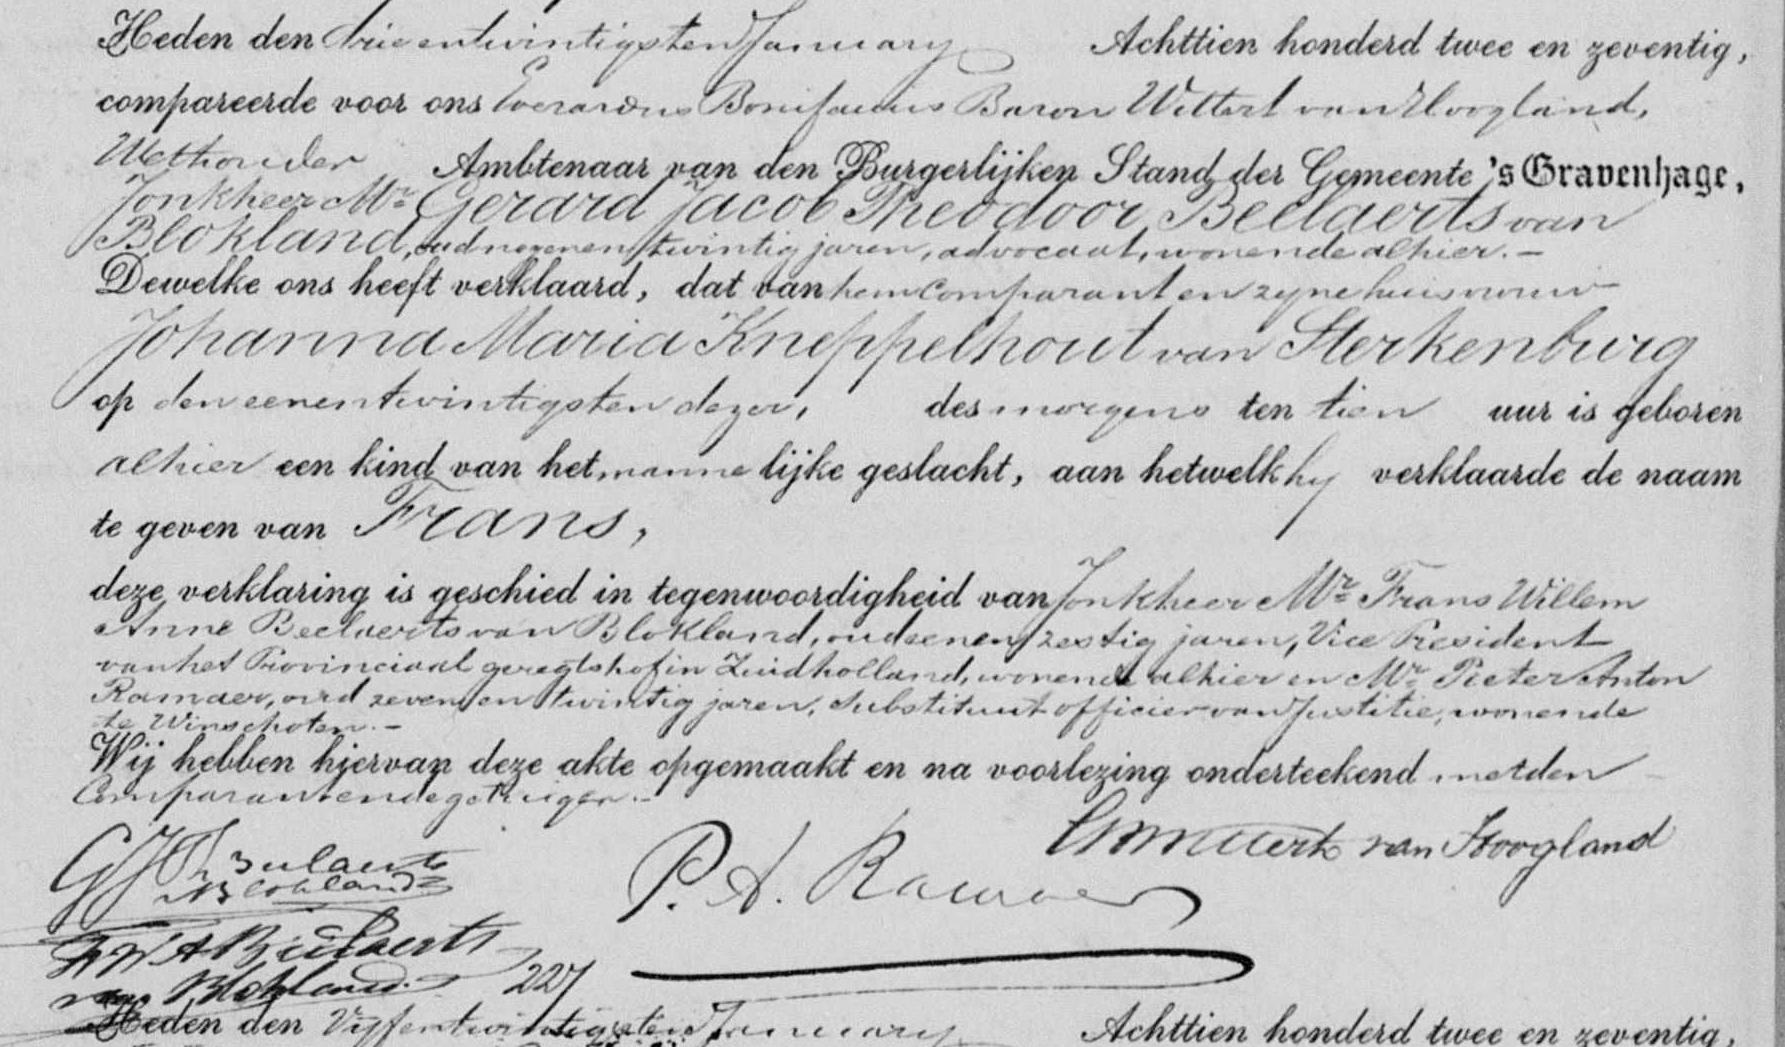 Heden den drieentwintigsten January Achttien honderd twee en zeventig,
compareerde voor ons Everardus Bonifacius Baron Wittert van Hoogland,
Wethouder Ambtenaar van den Burgerlijken Stand der Gemeente 's Gravenhage,
Jonkheer Mr. Gerard Jacob Theodoor Beelaerts van
Blokland, oud negenentwintig jaren, advocaat, wonende alhier. —
Dewelke ons heeft verklaard, dat van hem Comparant en zyne huisvrouw
Johanna Maria Kneppelhout van Sterkenburg
op den eenentwintigsten dezer, des morgens ten tien uur is geboren
alhier een kind van het mannelijke geslacht, aan hetwelk hy verklaarde de naam
te geven van Frans,
deze verklaring is geschied in tegenwoordigheid van Jonkheer Mr. Frans Willem
Anne Beelaerts van Blokland, oud eenenzestig jaren, Vice President
van het Provinciaal geregtshof in Zuidholland, wonende alhier en Mr. Pieter Anton
Ramaer, oud zevenentwintig jaren, Substituut officier van Justitie, wonende
te Winschoten. —
Wij hebben hiervan deze akte opgemaakt en na voorlezing onderteekend met den
Comparant en de getuigen. —
van Hoogland
GJTh Beelaerts
v Blokland
P. A. Ramaer
FWA Beelaerts
van Blokland
227
Heden den Vyfentwintigsten January Achttien honderd twee en zeventig,